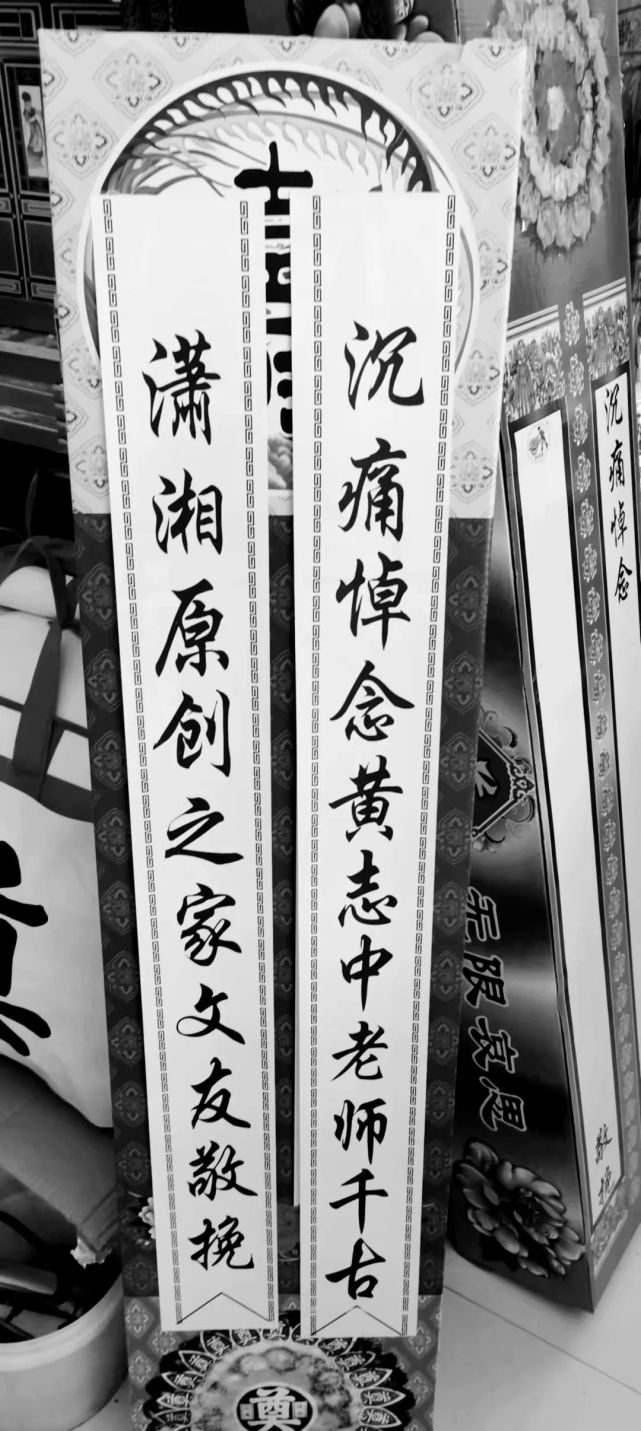 沉痛悼念黄志中老师千古
潇湘原创之家文友敬挽
沉痛悼念
敬挽
无限哀思
奠